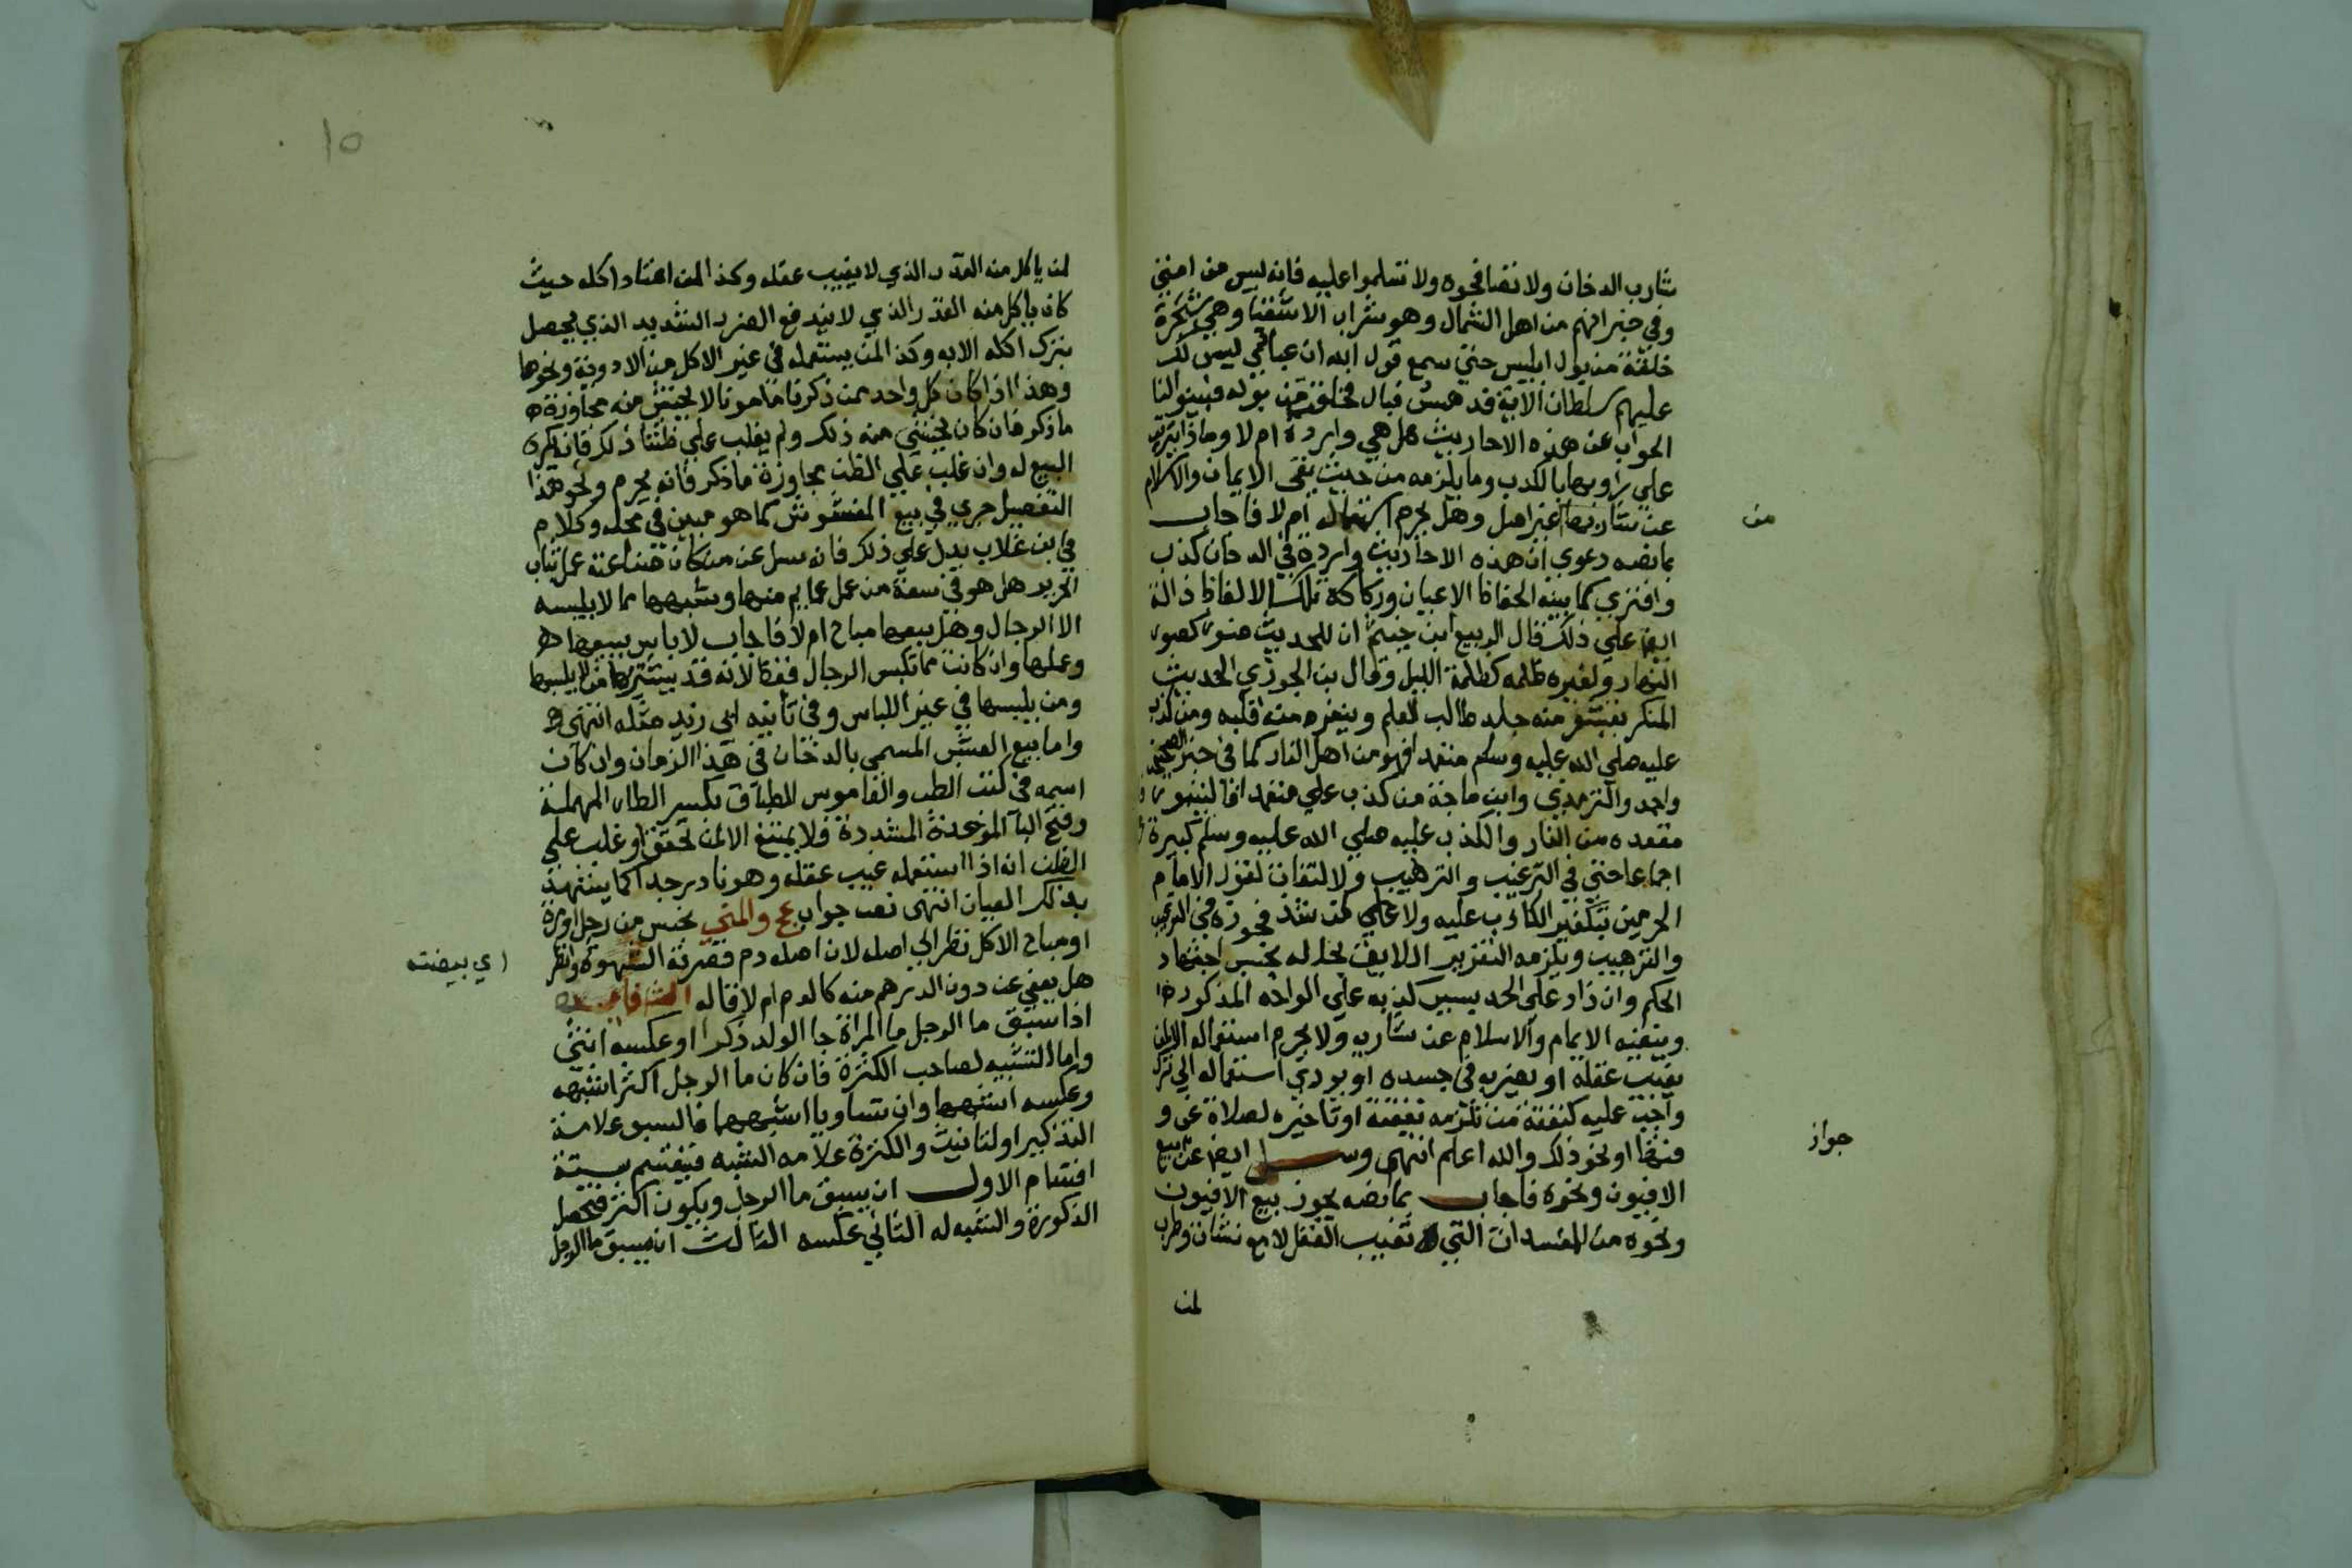 شارب الدخان ولا تصافحوه ولا تسلموا عليه فانه ليس من امتي
وفي خبر انهم من اهل الشمال وهو شراب الاشقيا وهي شجرة
خلقت من بول ابليس حتي سمع قول الله ان عبادي ليس لك
عليهم سلطان الاية قد هش فبال فخلقت من بوله فبينوا لنا
الجواب عن هذه الاحاديث هل هي واردة ام لا وماذا يترتب
علي راويها بالكذب وما يلزمه من حيث نفي الايمان والاسلام
عن شاربها من غير اصل وهل يحرم استعماله ام لا فاجاب
بما نصه دعوي ان هذه الاحاديث واردة في الدخان كذب
وافتري كما بينه الحفاظ الاعيان وركاكة تلك الالفاظ دالة
ايضا علي ذلك قال الربيع ابن خيثم ان للحديث ضوء كضوء
النهار ولغيره ظلمه كظلمة الليل وقال بن الجوزي الحديث
المنكر يقشعر منه جلد طالب العلم وينفر منه قلبه ومن كذب
عليه صلي الله عليه وسلم متعمدا فهو من اهل النار كما في خبر الصحيحين
واحمد والترمذي وابن ماجة من كذب علي متعمدا فاليتبوء
مقعده من النار والكذب عليه صلي الله عليه وسلم كبيرة
اجماعا حتي في الترغيب والترهيب ولا التفات لقول الامام
الحرمين بتكفير الكاذب عليه ولا علي من شذ فجوزه في الترغيب
والترهيب ويلزمه التعزير اللايق بحاله بحسب اجتهاد
الحكم وان زاد علي الحد بسبب كذبه علي الوجه المذكور
وبنفيه الايمام والاسلام عن شاربه ولا يحرم استعماله الا لمن
يغيب عقله او يضر به في جسده او يودي استعماله الي ترك
واجب عليه كنفقة من تلزمه نفقته او تاخيره لصلاة عن و
قتها او نحو ذلك والله اعلم انتهي وسيل ايضا عن جواز بيع
الافيون ونحوه فاجاب بما نصه يجوز بيع الافيون
ونحوه من المفسدات التي تغيب العقل لا مع نشاة وطرب
لمن
لمن ياكل منه القدر الذي لا يغيب عقله وكذا لمن اعتاد اكله حيث
كان ياكل منه القدر الذي لا يندفع الضرر الشديد الذي يحصل
بترك اكله الا به وكذا لمن يستعمله في غير الاكل من الادوية ونحوها
وهذا اذا كان كل واحد ممن ذكرنا مامونا لا يخشي منه مجاوزة
ما ذكر فان كان يخشي منه ذلك ولم يغلب علي ظننا ذلك فانه يكره
البيع له وان غلب علي الظن مجاوزة ما ذكر فانه يحرم ونحو هذا
التفصيل جري في بيع المغشوش كما هو مبين في محله وكلام
في ابن غلاب يدل علي ذلك فانه سيل عن من كان صناعته عمل ثياب
الحرير هل هو في سعة من عمل عمايم منها وشبهها مما لا يلبسه
الا الرجال وهل بيعها مباح ام لا فاجاب لا باس ببيعها
وعملها وان كانت مما تلبس الرجال فقط لانه قد يشتريها من لا يلبسها
ومن يلبسها في غير اللباس وفي تاليف ابي زيد مثله انتهي
واما بيع العشب المسمي بالدخان في هذا الزمان وان كان
اسمه في كتب الطب والقاموس الطباق بكسر الطاء المهملة
وفتح البا الموحدة المشددة فلا يمتنع الا لمن تحقق او غلب علي
الظن انه اذا استعمله غيب عقله وهو نادر جدا كما يشهد
بذلك العيان انتهي نعت جواب عج والمني نجس من رجل اومرة
او مباح الاكل نظرا الي اصله لان اصله دم قصرته الشهوة وانظر
هل يعفي عن دون الدرهم منه كالدم ام لا قاله الشفا
اذا سبق ما الرجل ما المراة جا الولد ذكرا او عكسه انثي
واما التشبيه لصاحب الكثرة فان كان ما الرجل اكثر اشبهه
وعكسه اشبهها وان تساويا اشبههما فالسبق علامة
التذكير او التانيث والكثرة علامه الشبه فيقتسم بستة
اقسام الاول ان يسبق ما الرجل ويكون اكثر فتحصل
الذكورة والشبه له الثاني عكسه الثالث ان يسبق ما الرجل
من
جواز
اي بيضته
١٥